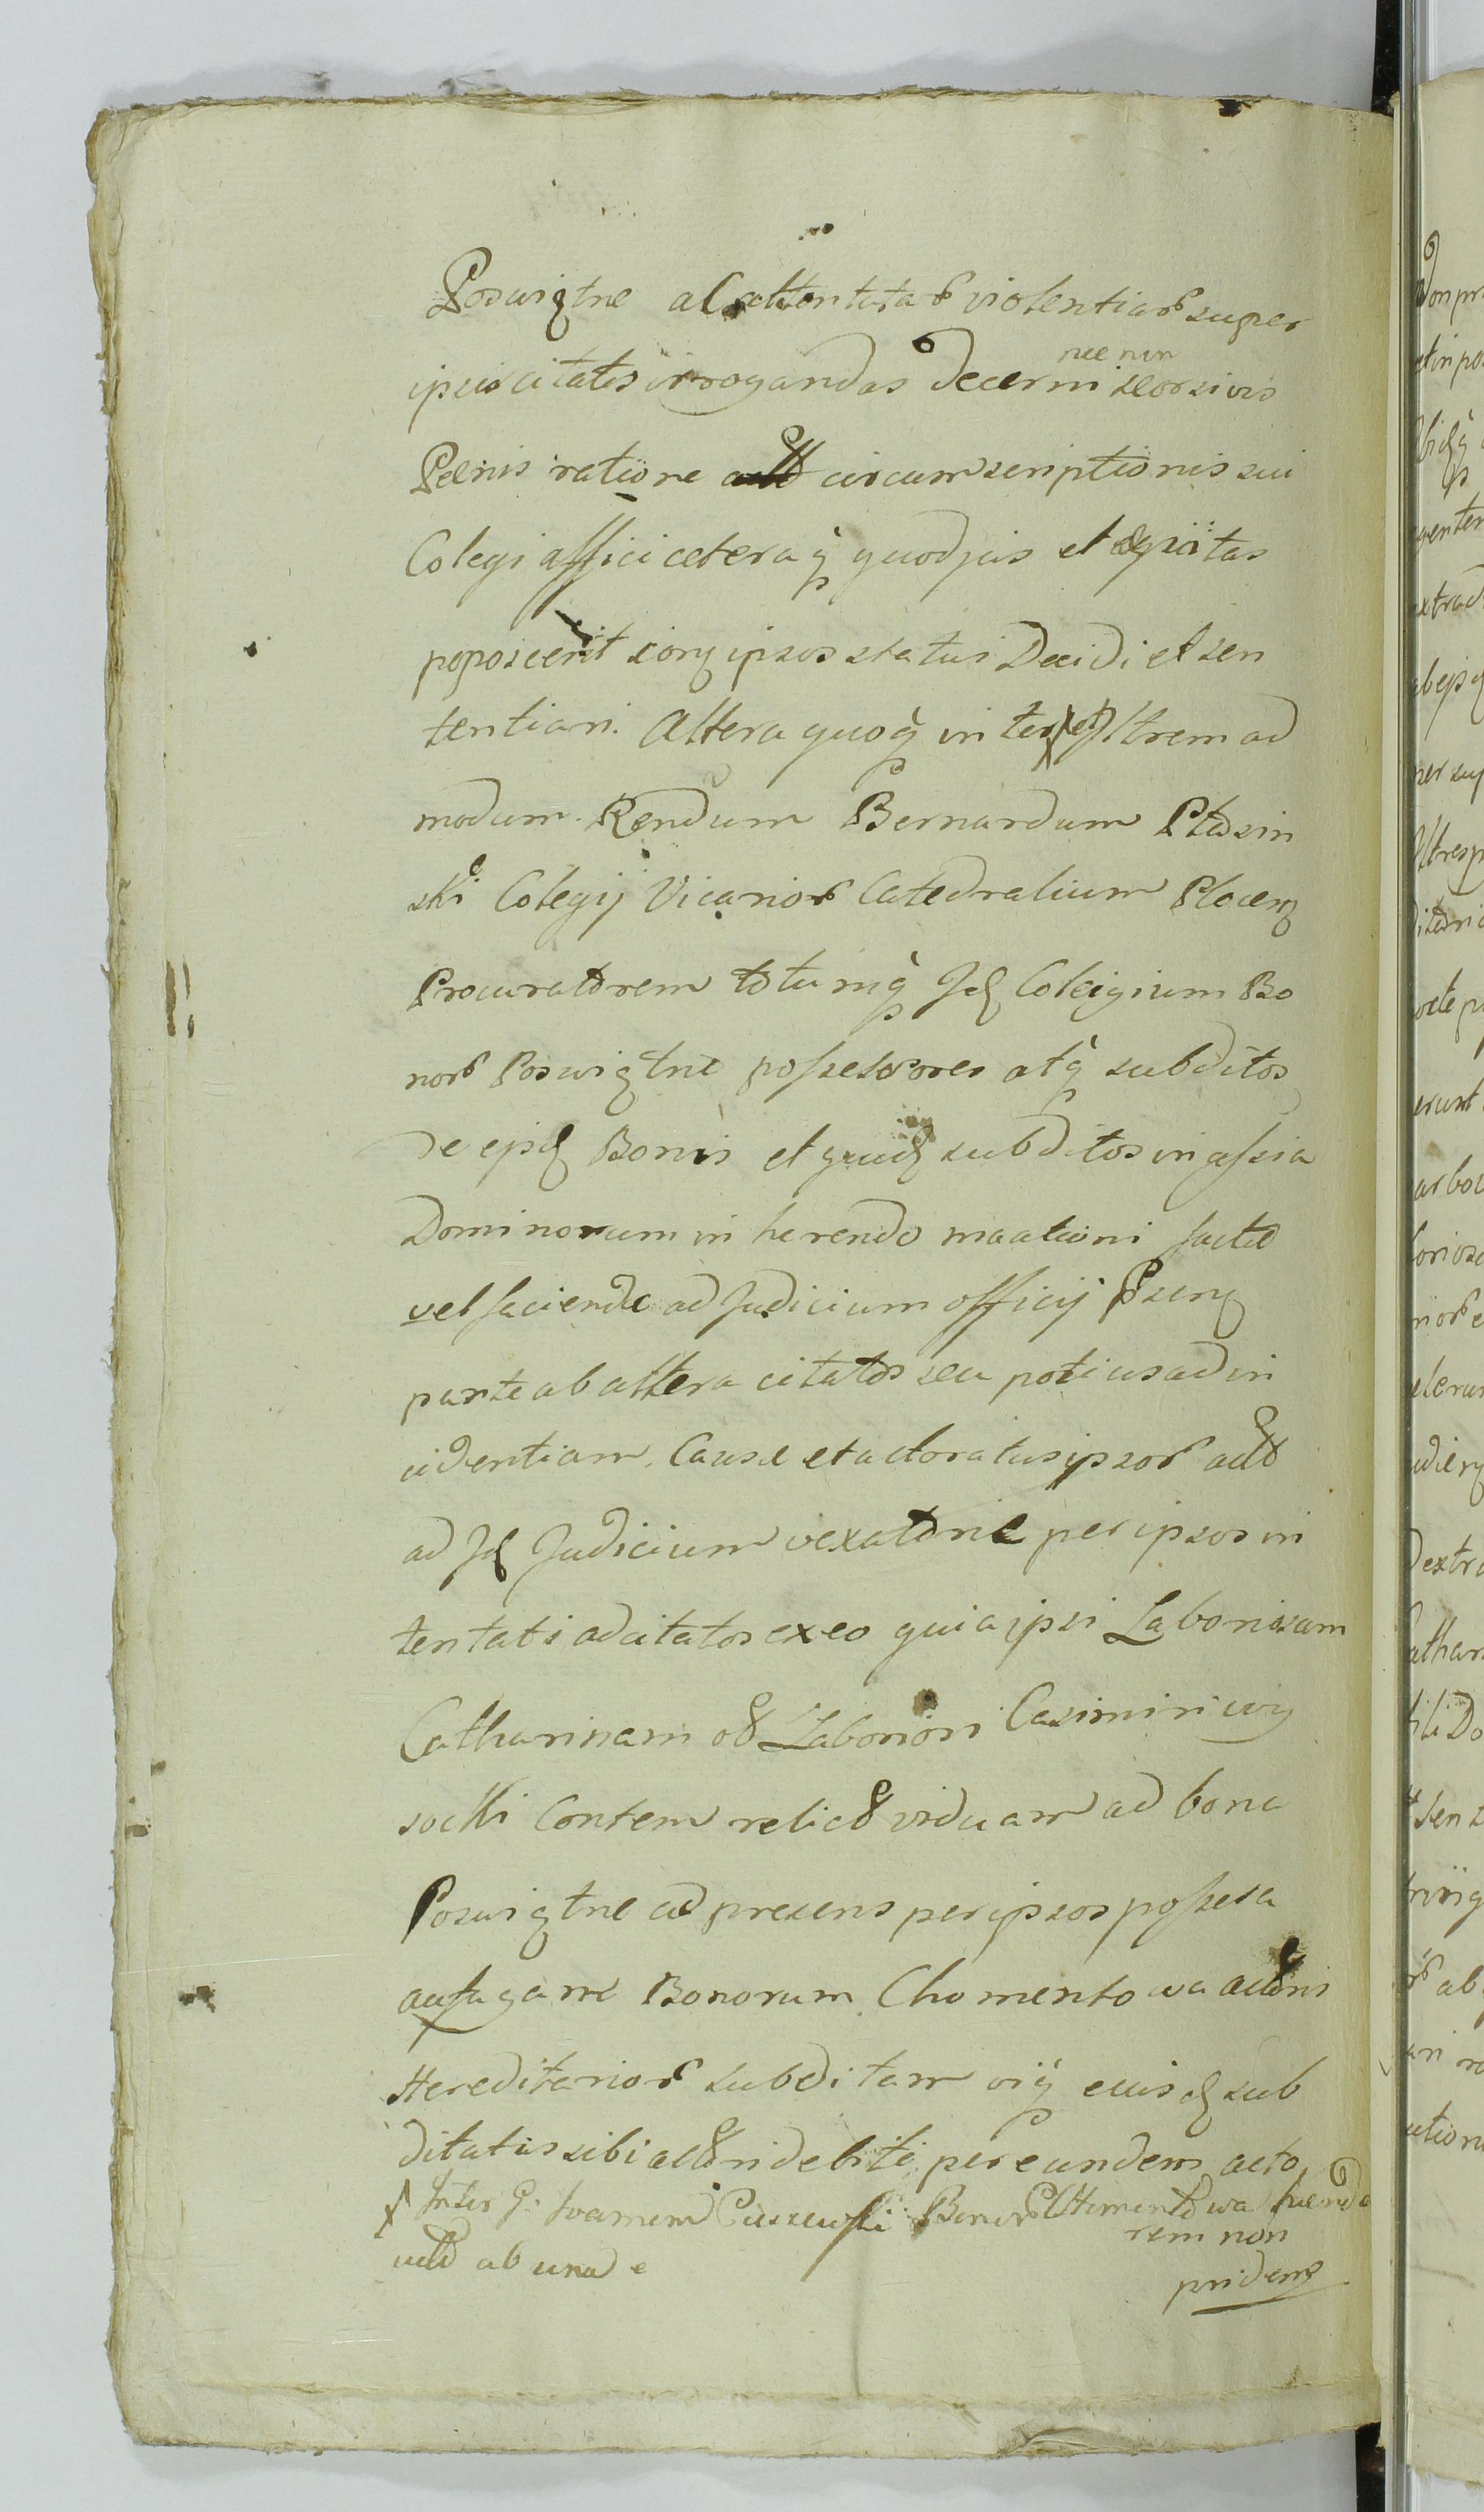 Poswigtne ac attentatar violentiar super
ipsis citatis irrogandas decerni nec non seorsivis
Penis ratione circumscriptionis sui
Colegi affici ceteraq quod jus et eqvitas
poposcerit ipsos statui Decidi et sen
tentiari. Altera quoq inter et Iltrem ad
modum Rendum Bernardum Ptasin
ski Colegij Vicarior Catedralium Plocen
Procuratorem totumq Id Coleigium Bo
nor Poswigtne possessores atq subditos
de ejsd Bonis et quid subditos in assia
Dominorum in herendo maationi facte
vel faciende ad Judicium officij Pszen
parte ab altera citatos seu potius ad in
cidentiam Cause et actoratus ipsor act
ad Id Judicium vexatorie per ipsos in
tentati ad citatos ex eo quia ipsi Laboriosam
Catharinam ol Laboriosi Casimiri wy
socki Contem relict viduam ad bona
Poswigtne ad presens per ipsos possessa
aufugam Bonorum Chomentowa actoris
Hereditarior subditam viq eiusd sub
ditatis sibi actori debite per eundem acto
rem non
pridem
Inter G. Ioannem Cieszewski Bonor Chomentowa heredem
act ab una e